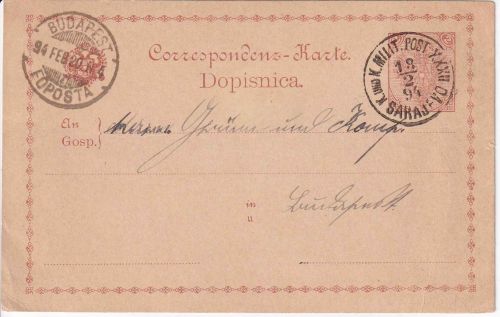 BUDAPEST
94 FEB 20
FŐPOSTA
Correspondenz-Karte.
Dopisnica.
K. UND K. MILIT. POST XXXII
18
2
94
SARAJEVO
An
Gosp.
Herrn und Komp.
in
u
Budapest